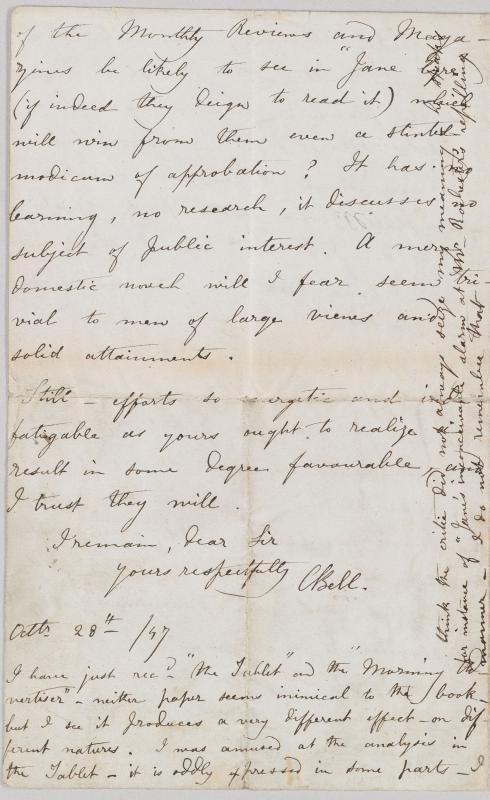 of the Monthly Reviews and Maga-
zines be likely to see in "Jane Eyre"
(if indeed they deign to read it) which
will win from them even a stinted
modicum of approbation? It has no
learning, no research, it discusses no
subject of public interest. A mere
domestic novel will I fear seem tri-
vial to men of large views and
solid attainments.
Still - efforts so energetic and in-
fatigable as yours ought to realize
result in some degree favourable,
I trust they will.
I remain, dear Sir
Yours respectfully
CBell.
Octbr 28th /47
I have just recd "the Tablet" and the "Morning Ad-
vertiser" - neither paper seems inimical to the book -
but I see it produces a very different effect - on dif-
ferent natures. I was amused at the analysis in
the Tablet - it is oddly expressed in some parts - I
think the critic did not always seize my meaning - he speaks
for instance of "Jane's inconceivable alarm at Mr Rochester's repelling
manner - I do not remember that